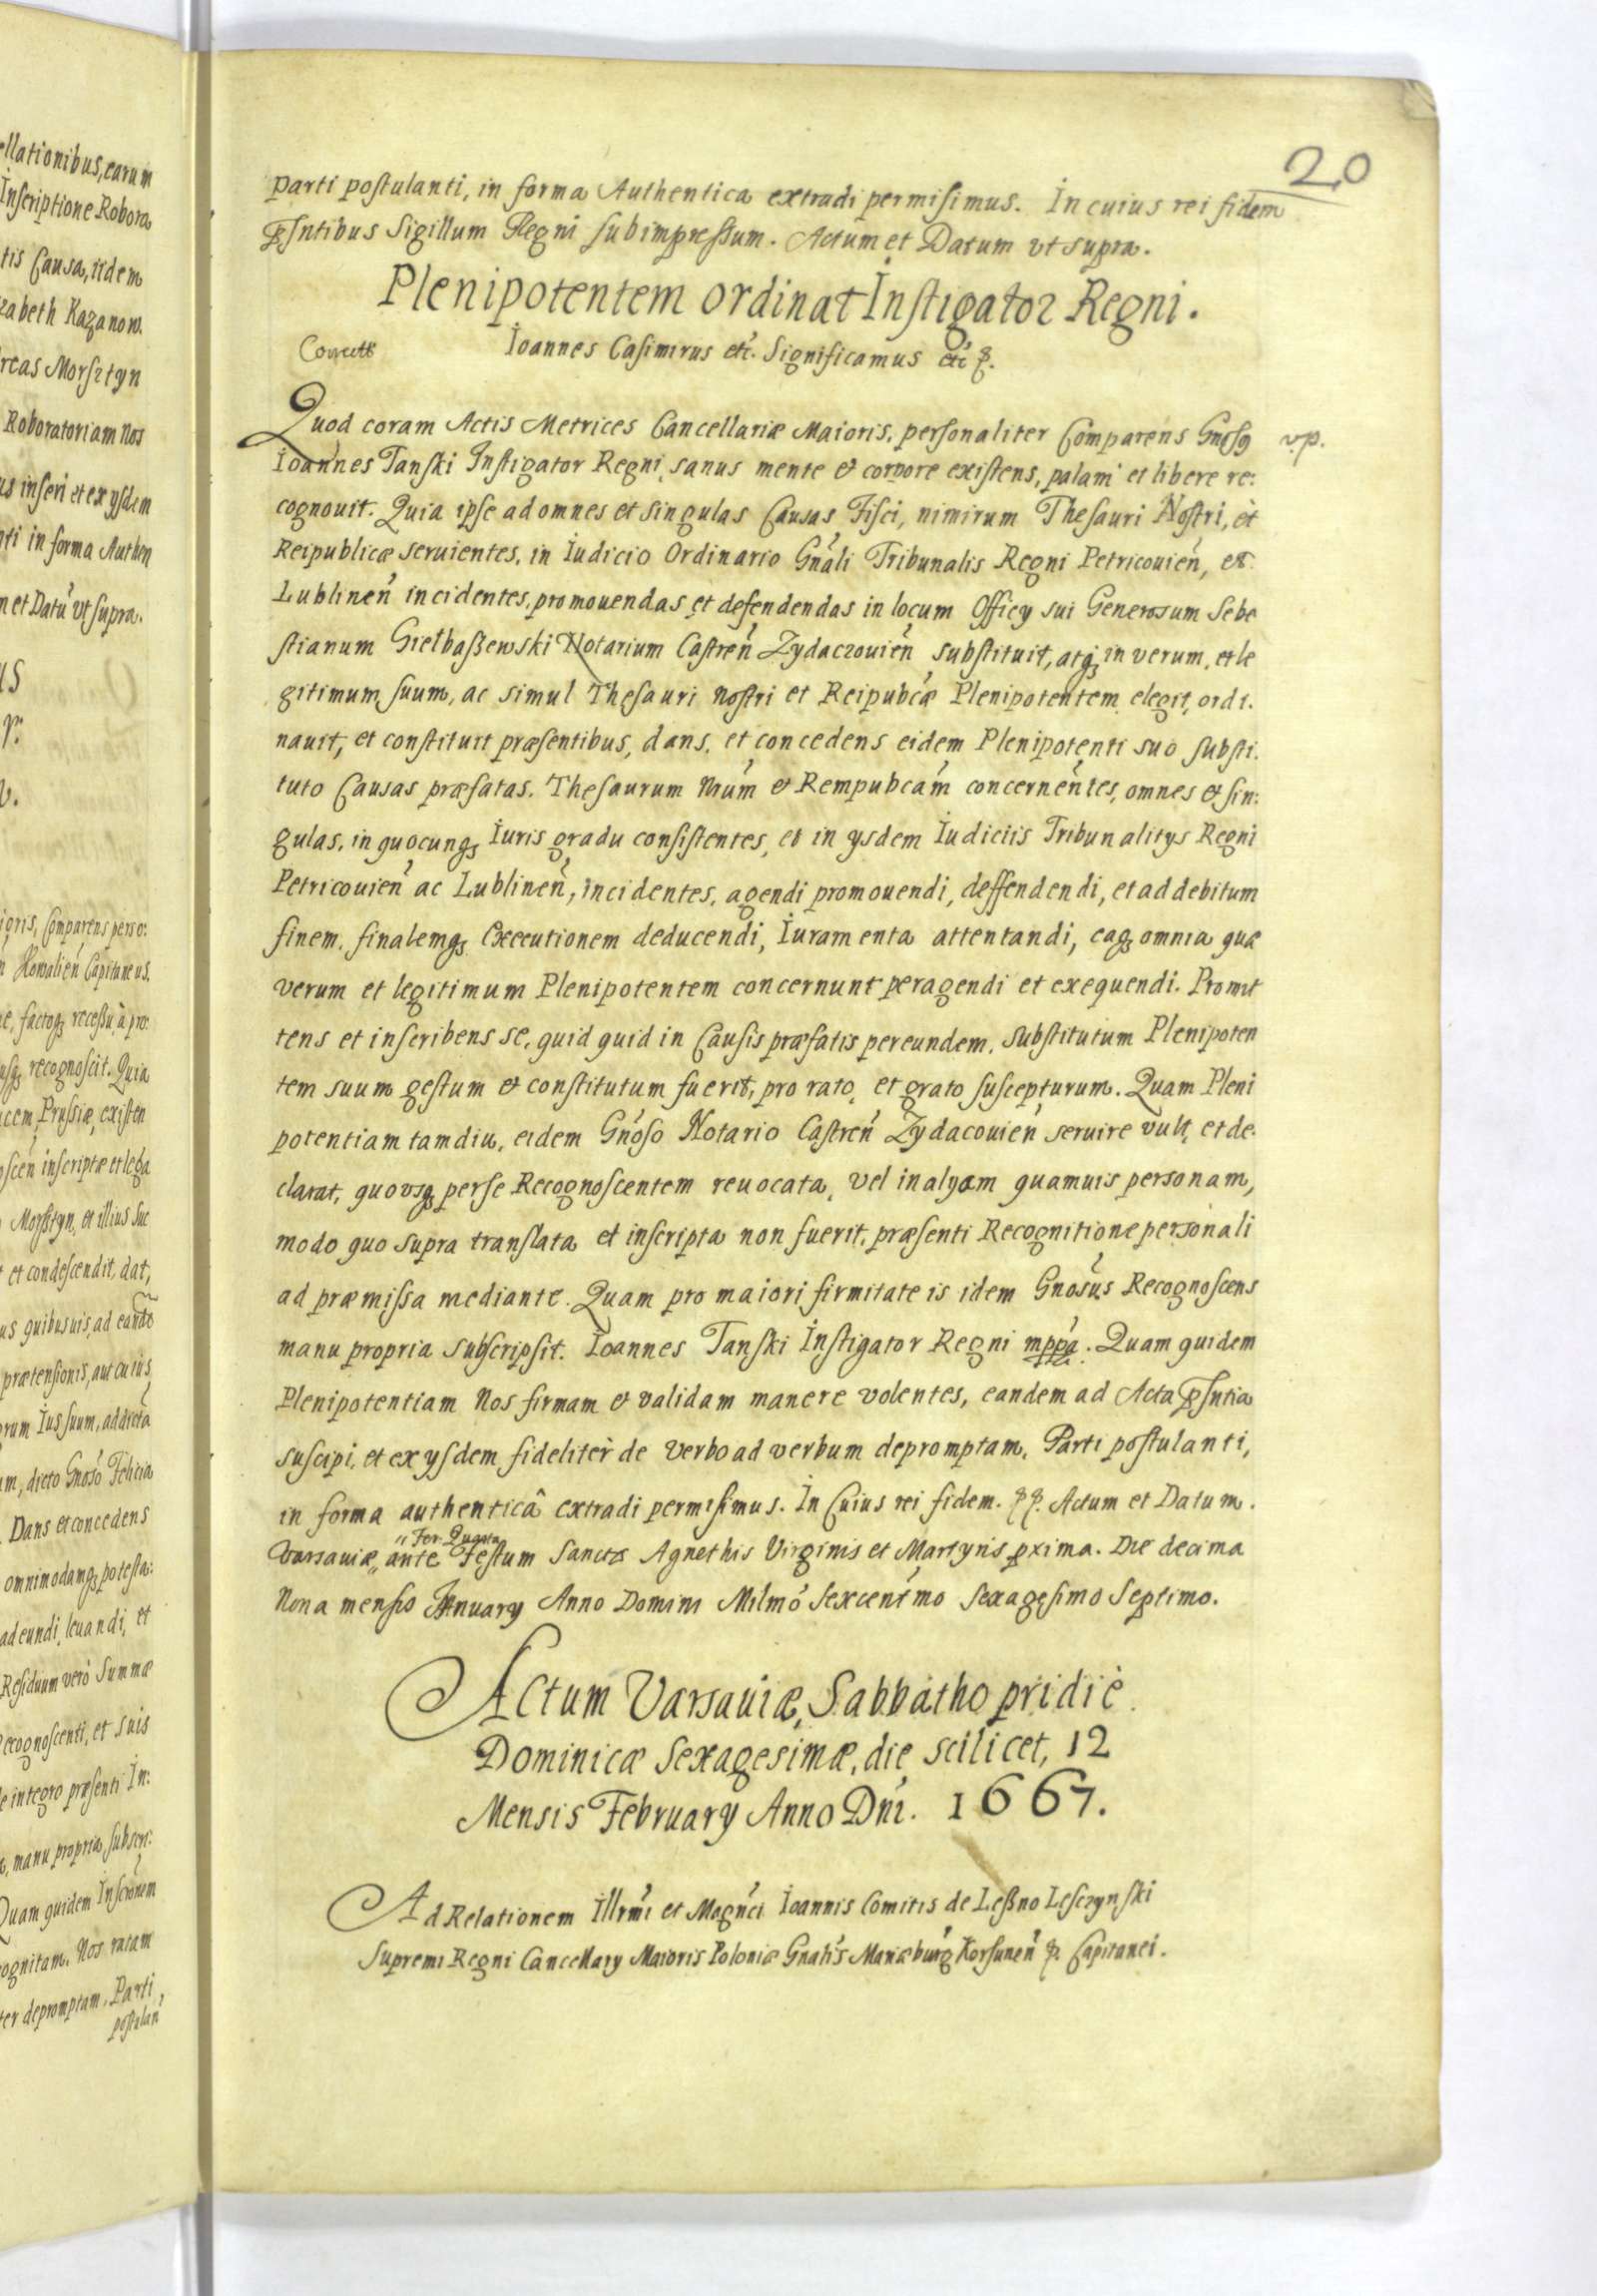 ellationibus, earum
Inscriptione Robora
tis Causa, iidem
zabeth Kazanow.
reas Morsztyn
Roboratoriam Nos
us inseri et ex ysdem
nti in forma Authen
n et Datũ vt supra.
ioris, Comparens perso:
Capitaneus.
ie, factoq; recessu à pro:
usq; recognoscit. Quia
ucem Prussiæ, existen
oscen̄ inscriptæ et lega
Morsztyn, et illius suc
et condescendit, dat,
us quibusuis, ad eand
prætensionis, aut cuius
orum Ius suum, ad dicta
um, dicto Gnoso Felicia
Dans et concedens
omnimodamq; potesta:
adeundi, leuandi, et
Residuum verò Summæ
Recognoscenti, et suis
e integro præsenti In:
a, manu propria subscri:
Quam quidem Inscrōnem
cognitam. Nos ratam
ter depromptam. Parti
postulan
20
parti postulanti, in forma Authentica extradi permisimus. In cuius rei fidem
p̄sntibus Sigillum Regni subimpressum. Actum et Datum vt supra.
Plenipotentem ordinat Instigator Regni.
Correcte
Ioannes Casimirus etc. Significamus etc p.
Quod coram Actis Metrices Cancellariæ Maioris, personaliter Comparens Gnosg v.p.
Ioannes Tanski Instigator Regni, sanus mente et corpore existens, palam et libere re:
cognouit. Quia ipse ad omnes et singulas Causas Fisci, nimirum Thesauri Nostri, èt
Reipublicæ seruientes, in Iudicio Ordinario Gnãli Tribunalis Regni Petricouień, et
Lublineń incidentes, promouendas et defendendas in locum Officy sui Generosum Seba
stianum Giełbaszewski Notarium Castreń Zydaczouień substituit, atq; in verum, et le
gitimum suum, ac simul Thesauri nostri et Reipubcæ Plenipotentem elegit, ordi.
nauit, et constituit præsentibus, dans, et concedens eidem Plenipotenti suo substi.
tuto Causas præfatas. Thesaurum Nrum et Rempubcam concernentes, omnes et sin:
gulas, in quocunq; Iuris gradu consistentes, et in ysdem Iudiciis Tribunalitys Regni
Petricouień ac Lublineń, incidentes, agendi promouendi, deffendendi, et ad debitum
finem, finalemq; Executionem deducendi, Iuramenta attentandi, eaq; omnia quæ
verum et legitimum Plenipotentem concernunt peragendi et exequendi. Promit
tens et inscribens se, quid quid in Causis præfatis per eundem, substitutum Plenipoten
tem suum gestum et constitutum fuerit, pro rato, et grato suscepturum. Quam Pleni
potentiam tamdiu, eidem Gnoso Notario Castreń Zydacouień seruire vult, et de.
clarat, quovsq; per se Recognoscentem reuocata, vel in alyam quamuis personam,
modo quo supra translata et inscripta non fuerit, præsenti Recognitione personali
ad præmissa mediante. Quam pro maiori firmitate is idem Gnosus Recognoscens
manu propria subscripsit. Ioannes Tanski Instigator Regni mppa. Quam quidem
Plenipotentiam Nos firmam et validam manere volentes, eandem ad Acta p̄sntia
suscipi, et ex ysdem fideliter de verbo ad verbum depromptam, Parti postulanti,
in forma authenticâ extradi permisimus. In Cuius rei fidem. pp. Actum et Datum.
Fer. Quarta
Varsauiæ ante Festum Sanctæ Agnethis Virginis et Martyris pxima. Die decima
Nona mensis Ianuary Anno Domini Milmo Sexcentmo Sexagesimo Septimo.
Actum Varsauiæ, Sabbatho pridiè
Dominicæ Sexagesimæ, die scilicet, 12
Mensis February Anno Dni. 1667.
Ad Relationem Illrmi et Magnci Ioannis Comitis de Leszno Lesczynski
Supremi Regni Cancellary Maioris Poloniæ Gnalis Mariæburg Korsuneń p. Capitanei.